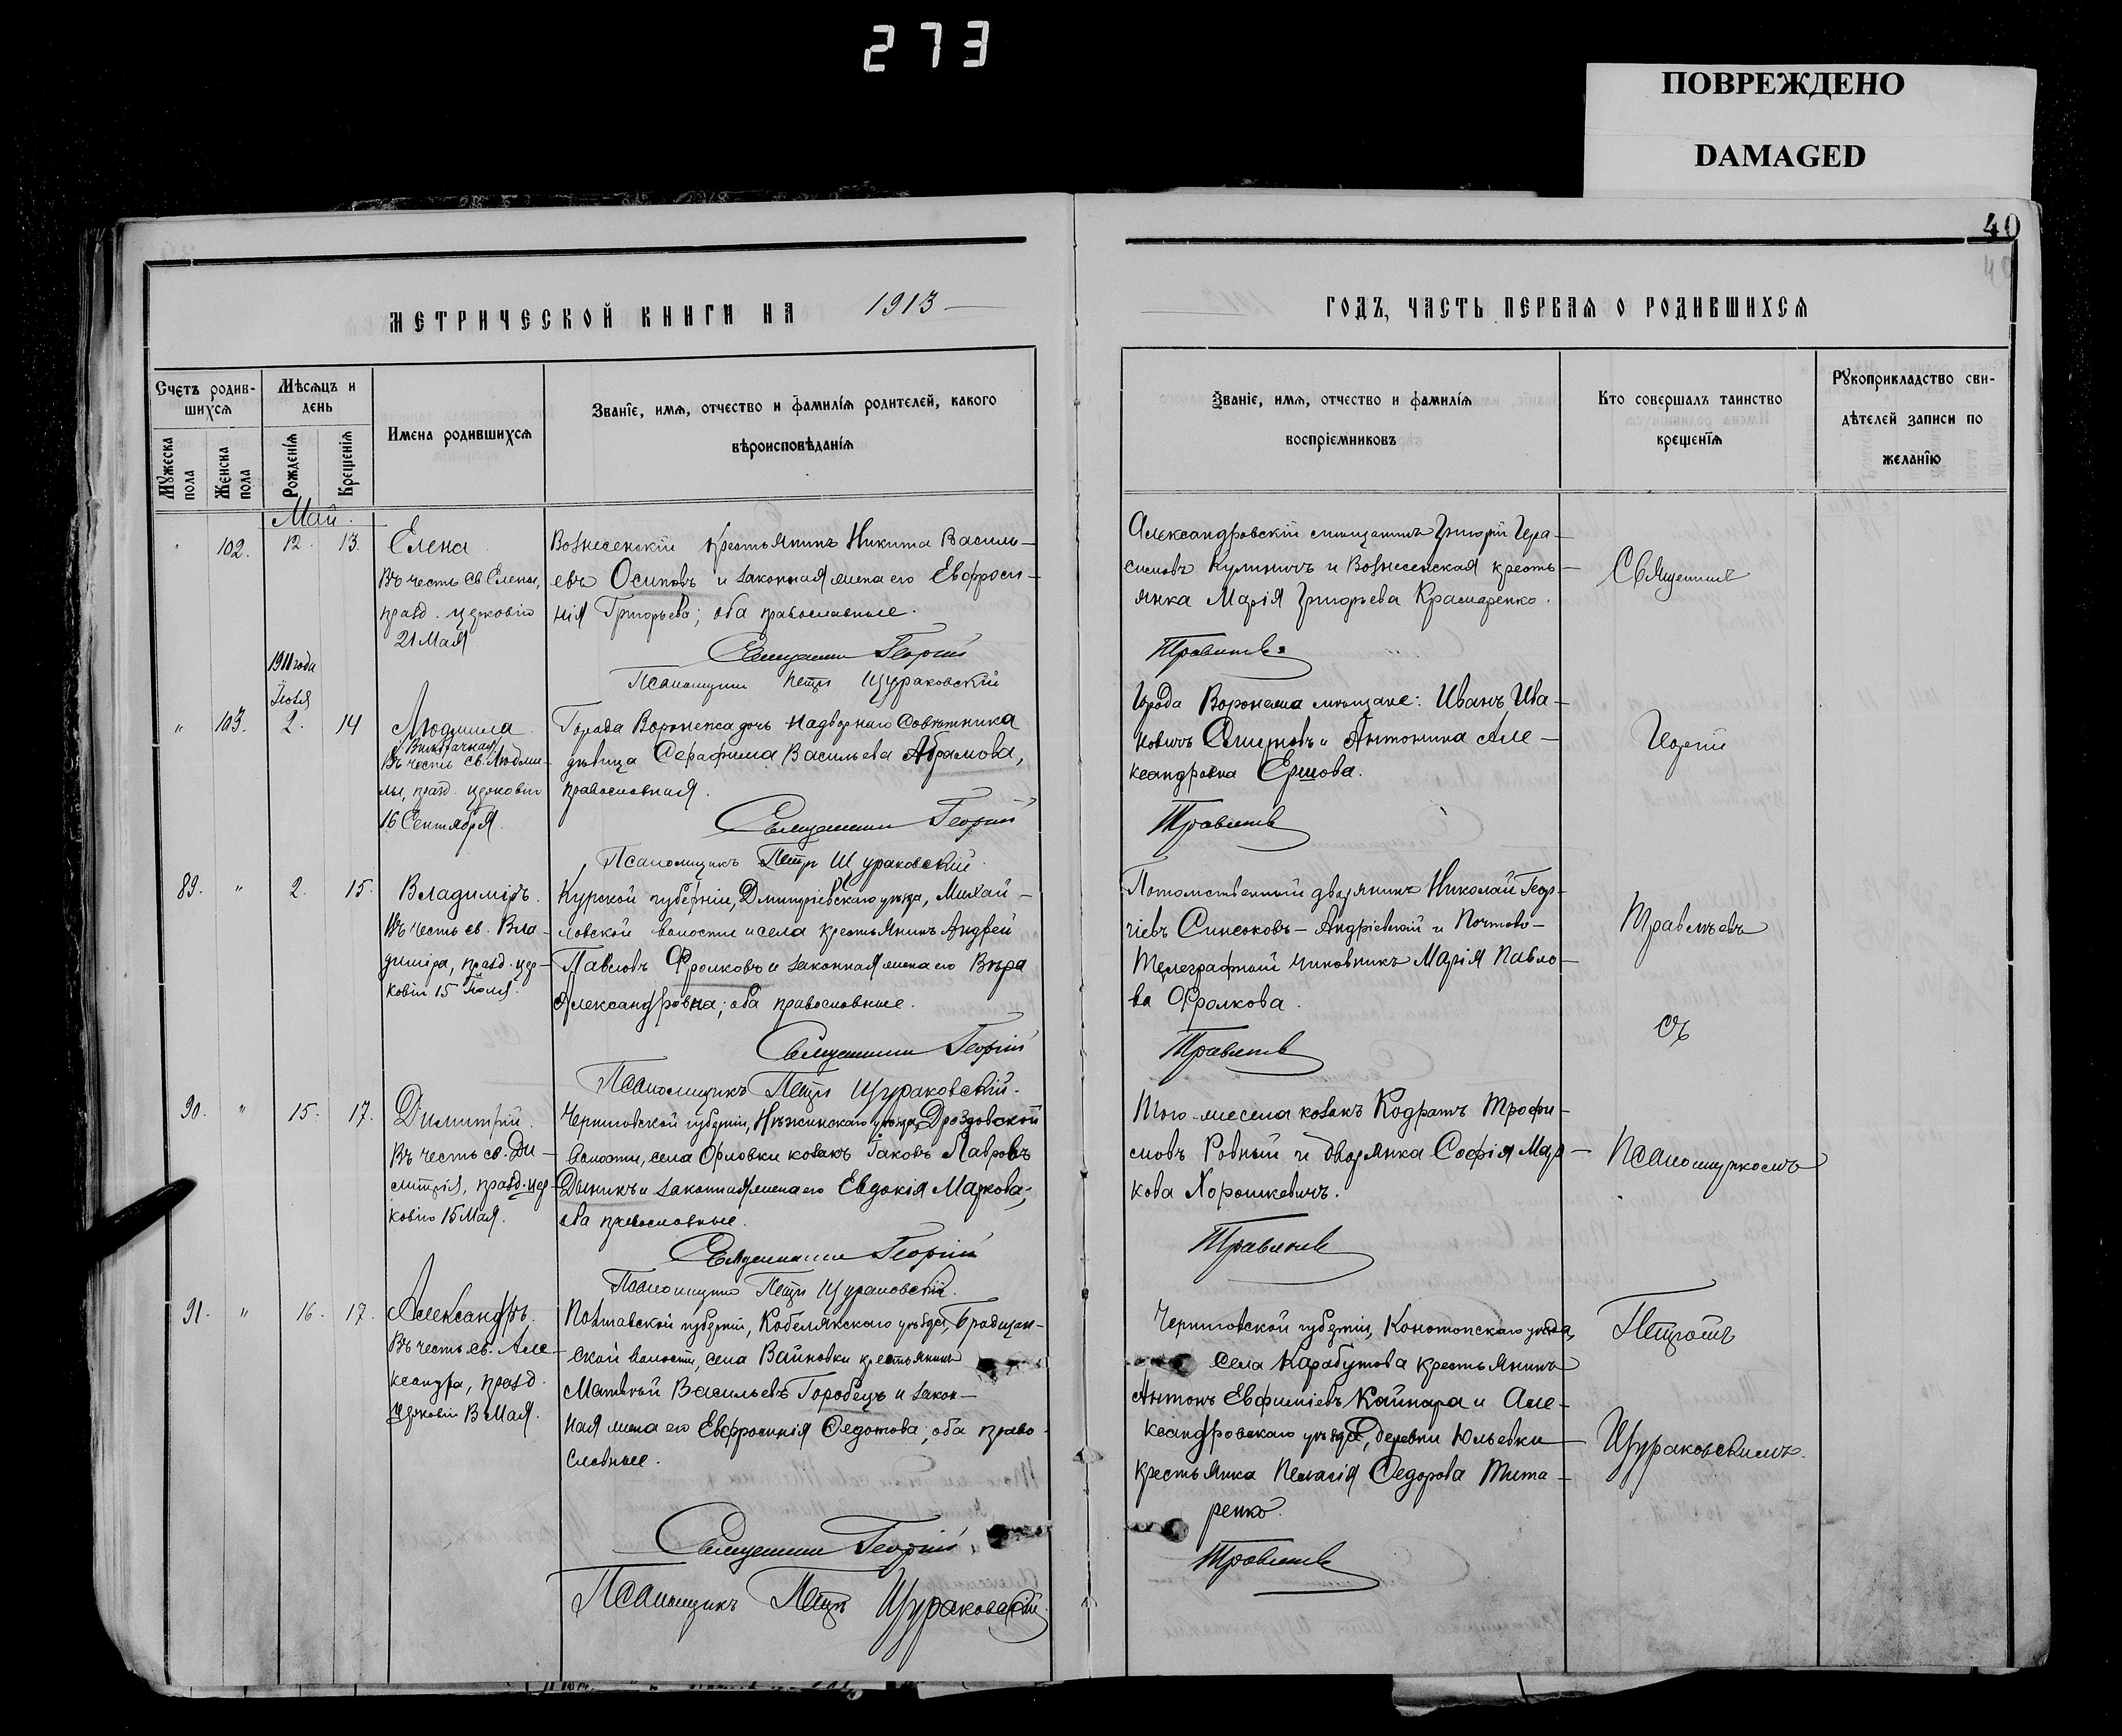 273
ПОВРЕЖДЕНО
DAMAGED
40
МЕТРИЧЕСКОЙ КНИГИ НА 1913
ГОДЪ, ЧАСТЬ ПЕРВАЯ О РОДИВШИХСЯ
Счетъ родив-
шихся
Мужеска пола
Женска пола
Мѣсяцъ и
день
Рожденія
Крещенія
Имена родившихся
Званіе, имя, отчество и фамилія родителей, какого
вѣроисповѣданія
Званіе, имя, отчество и фамилія
воспріемниковъ
Кто совершалъ таинство
крещенія
Рукоприкладство сви-
дѣтелей записи по
желанію
Май.
" 102. 12. 13.
Елена
Въ честь св. Елены,
празд. церковію
21 Мая
Вознесенскій крестьянинъ Никита Василь-
евъ Осиповъ и законная жена его Евфроси-
нія Григорьева; оба православные.
Священникъ Георгій
Псаломщикъ Петръ Щураковскій
Александровскій мѣщанинъ Григорій Гера-
симовъ Кулиничъ и Вознесенская кресть-
янка Марія Григорьева Крамаренко.
Травинъ
Священникъ
1911 года
Іюля
" 103. 2. 14
Людмила
/Внѣбрачная/
Въ честь св. Людми-
лы, празд. церковію
16 Сентября.
Города Воронежа дочь Надворнаго Совѣтника
дѣвица Серафима Васильева Абрамова,
православная.
Священникъ Георгій
Псаломщикъ Петръ Щураковскій.
Города Воронежа мѣщане: Иванъ Ива-
новичъ Смирновъ и Антонина Але-
ксандровна Ершова.
Георгій
89. " 2. 15.
Владиміръ.
Въ честь св. Вла-
диміра, празд. цер-
ковію 15 Іюля.
Курской губерніи, Дмитріевскаго уѣзда, Михай-
ловской волости и села крестьянинъ Андрей
Павловъ Фролковъ и законная жена его Вѣра
Александровна; оба православные.
Священникъ Георгій
Псаломщикъ Петръ Щураковскій.
Потомственный дворянинъ Николай Геор-
гіевъ Синеоковъ-Андріевскій и Почтово-
Телеграфный чиновникъ Марія Павло-
ва Фролкова.
съ
90. " 15. 17.
Димитрій.
Въ честь св. Ди-
митрія, празд. цер-
ковію 15 Мая.
Черниговской губерніи, Нѣжинскаго уѣзда, Дроздовской
волости, села Орловки козакъ Іаковъ Лавровъ
и законная жена его Евдокія Маркова;
оба православные.
Священникъ Георгій
Псаломщикъ Петръ Щураковскій.
Того-же села козакъ Кодратъ Трофи-
мовъ Ровный и дворянка Софія Мар-
кова Хорошкевичъ.
Псаломщикомъ
91. " 16. 17.
Александръ.
Въ честь св. Але-
ксандра, празд.
церковію 13 Мая.
Полтавской губерніи, Кобелякскаго уѣзда,
ской волости, села Вайновки крестьянинъ
Матвѣй Васильевъ Горобецъ и закон-
ная жена его Евфросинія Федотова; оба право-
славные.
Священникъ Георгій
Псаломщикъ Петръ Щураковскій.
Черниговской губерніи, Конотопскаго уѣзда,
села Карабутова крестьянинъ
Антонъ Евфиміевъ Кайнара и Але-
ксандровскаго уѣзда, деревни Юльевки
крестьянка Пелагія Федорова Тита-
ренко.
Петромъ
Щураковскимъ.